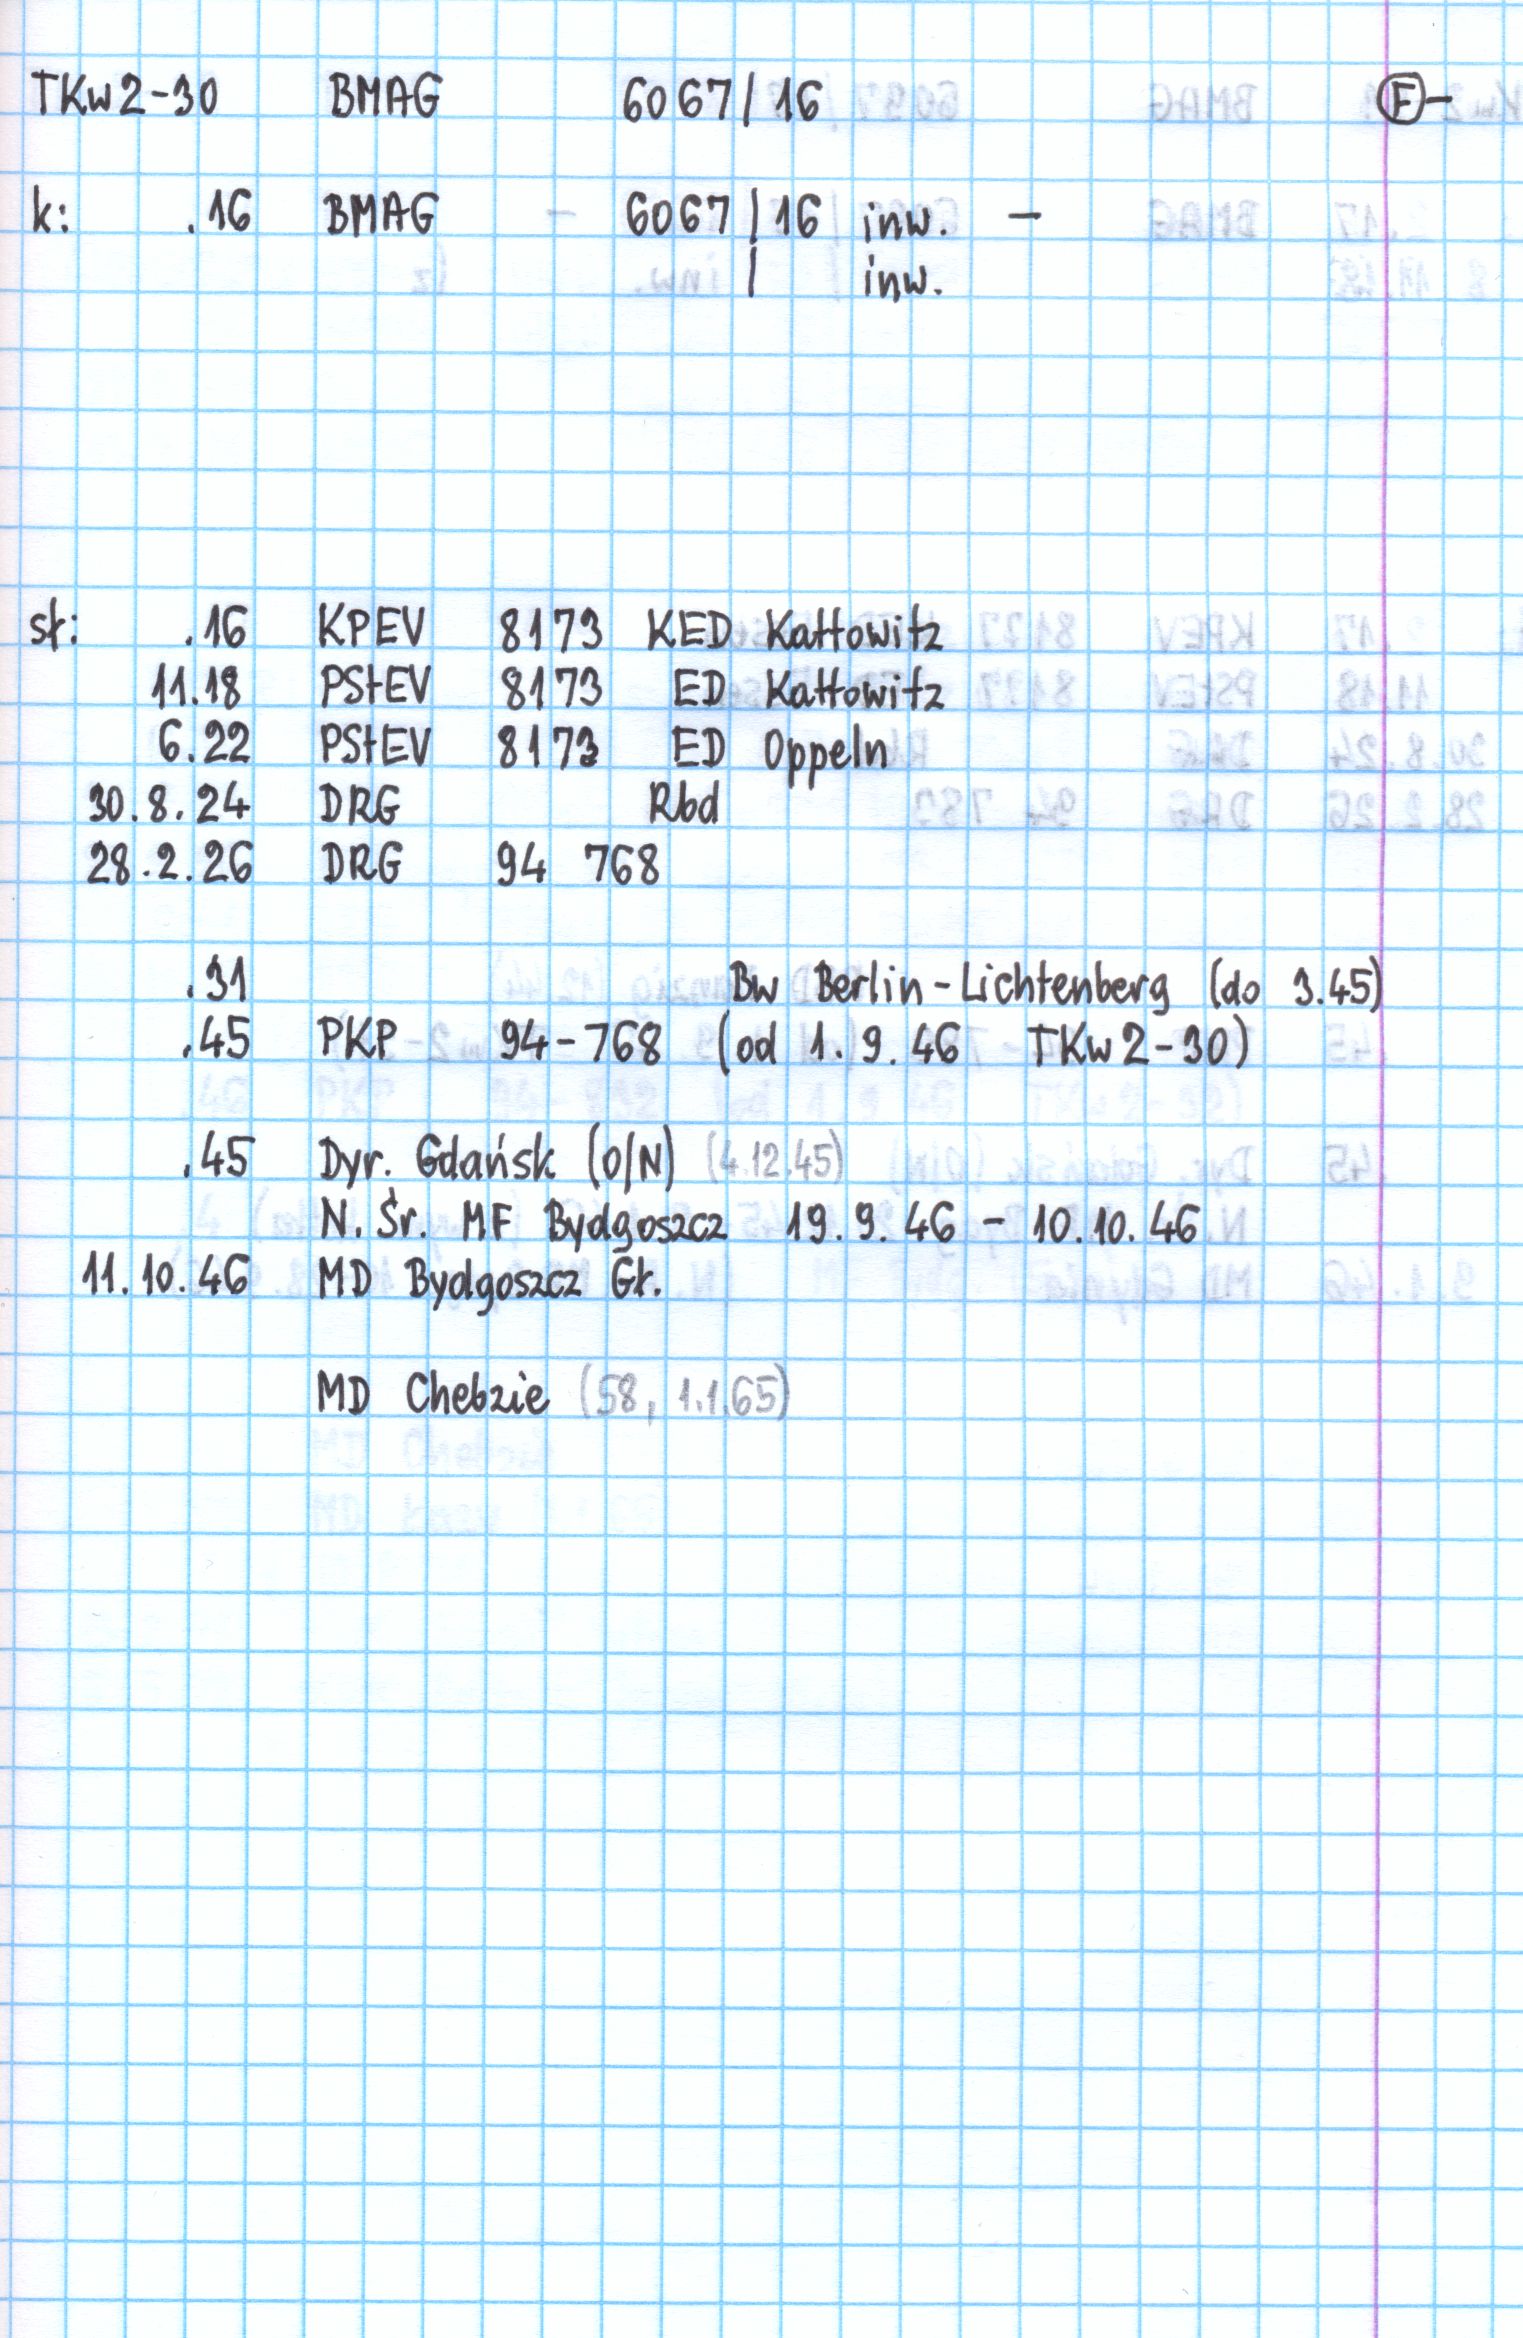 TKw2-30 BMAG 6067/16 F-
k: .16 BMAG - 6067/16 inw. -
/ inw.
sł: .16 KPEV 8173 KED Kattowitz
11.18 PStEV 8173 ED Kattowitz
6.22 PStEV 8173 ED Oppeln
30.8.24 DRG Rbd
28.2.26 DRG 94 768
.31 Bw Berlin-Lichtenberg (do 3.45)
.45 PKP 94-768 (od 1.9.46 TKw2-30)
.45 Dyr. Gdańsk (O/N) (4.12.45)
N. Śr. MF Bydgoszcz 19.9.46 - 10.10.46
11.10.46 MD Bydgoszcz Gł.
MD Chebzie (58, 1.1.65)